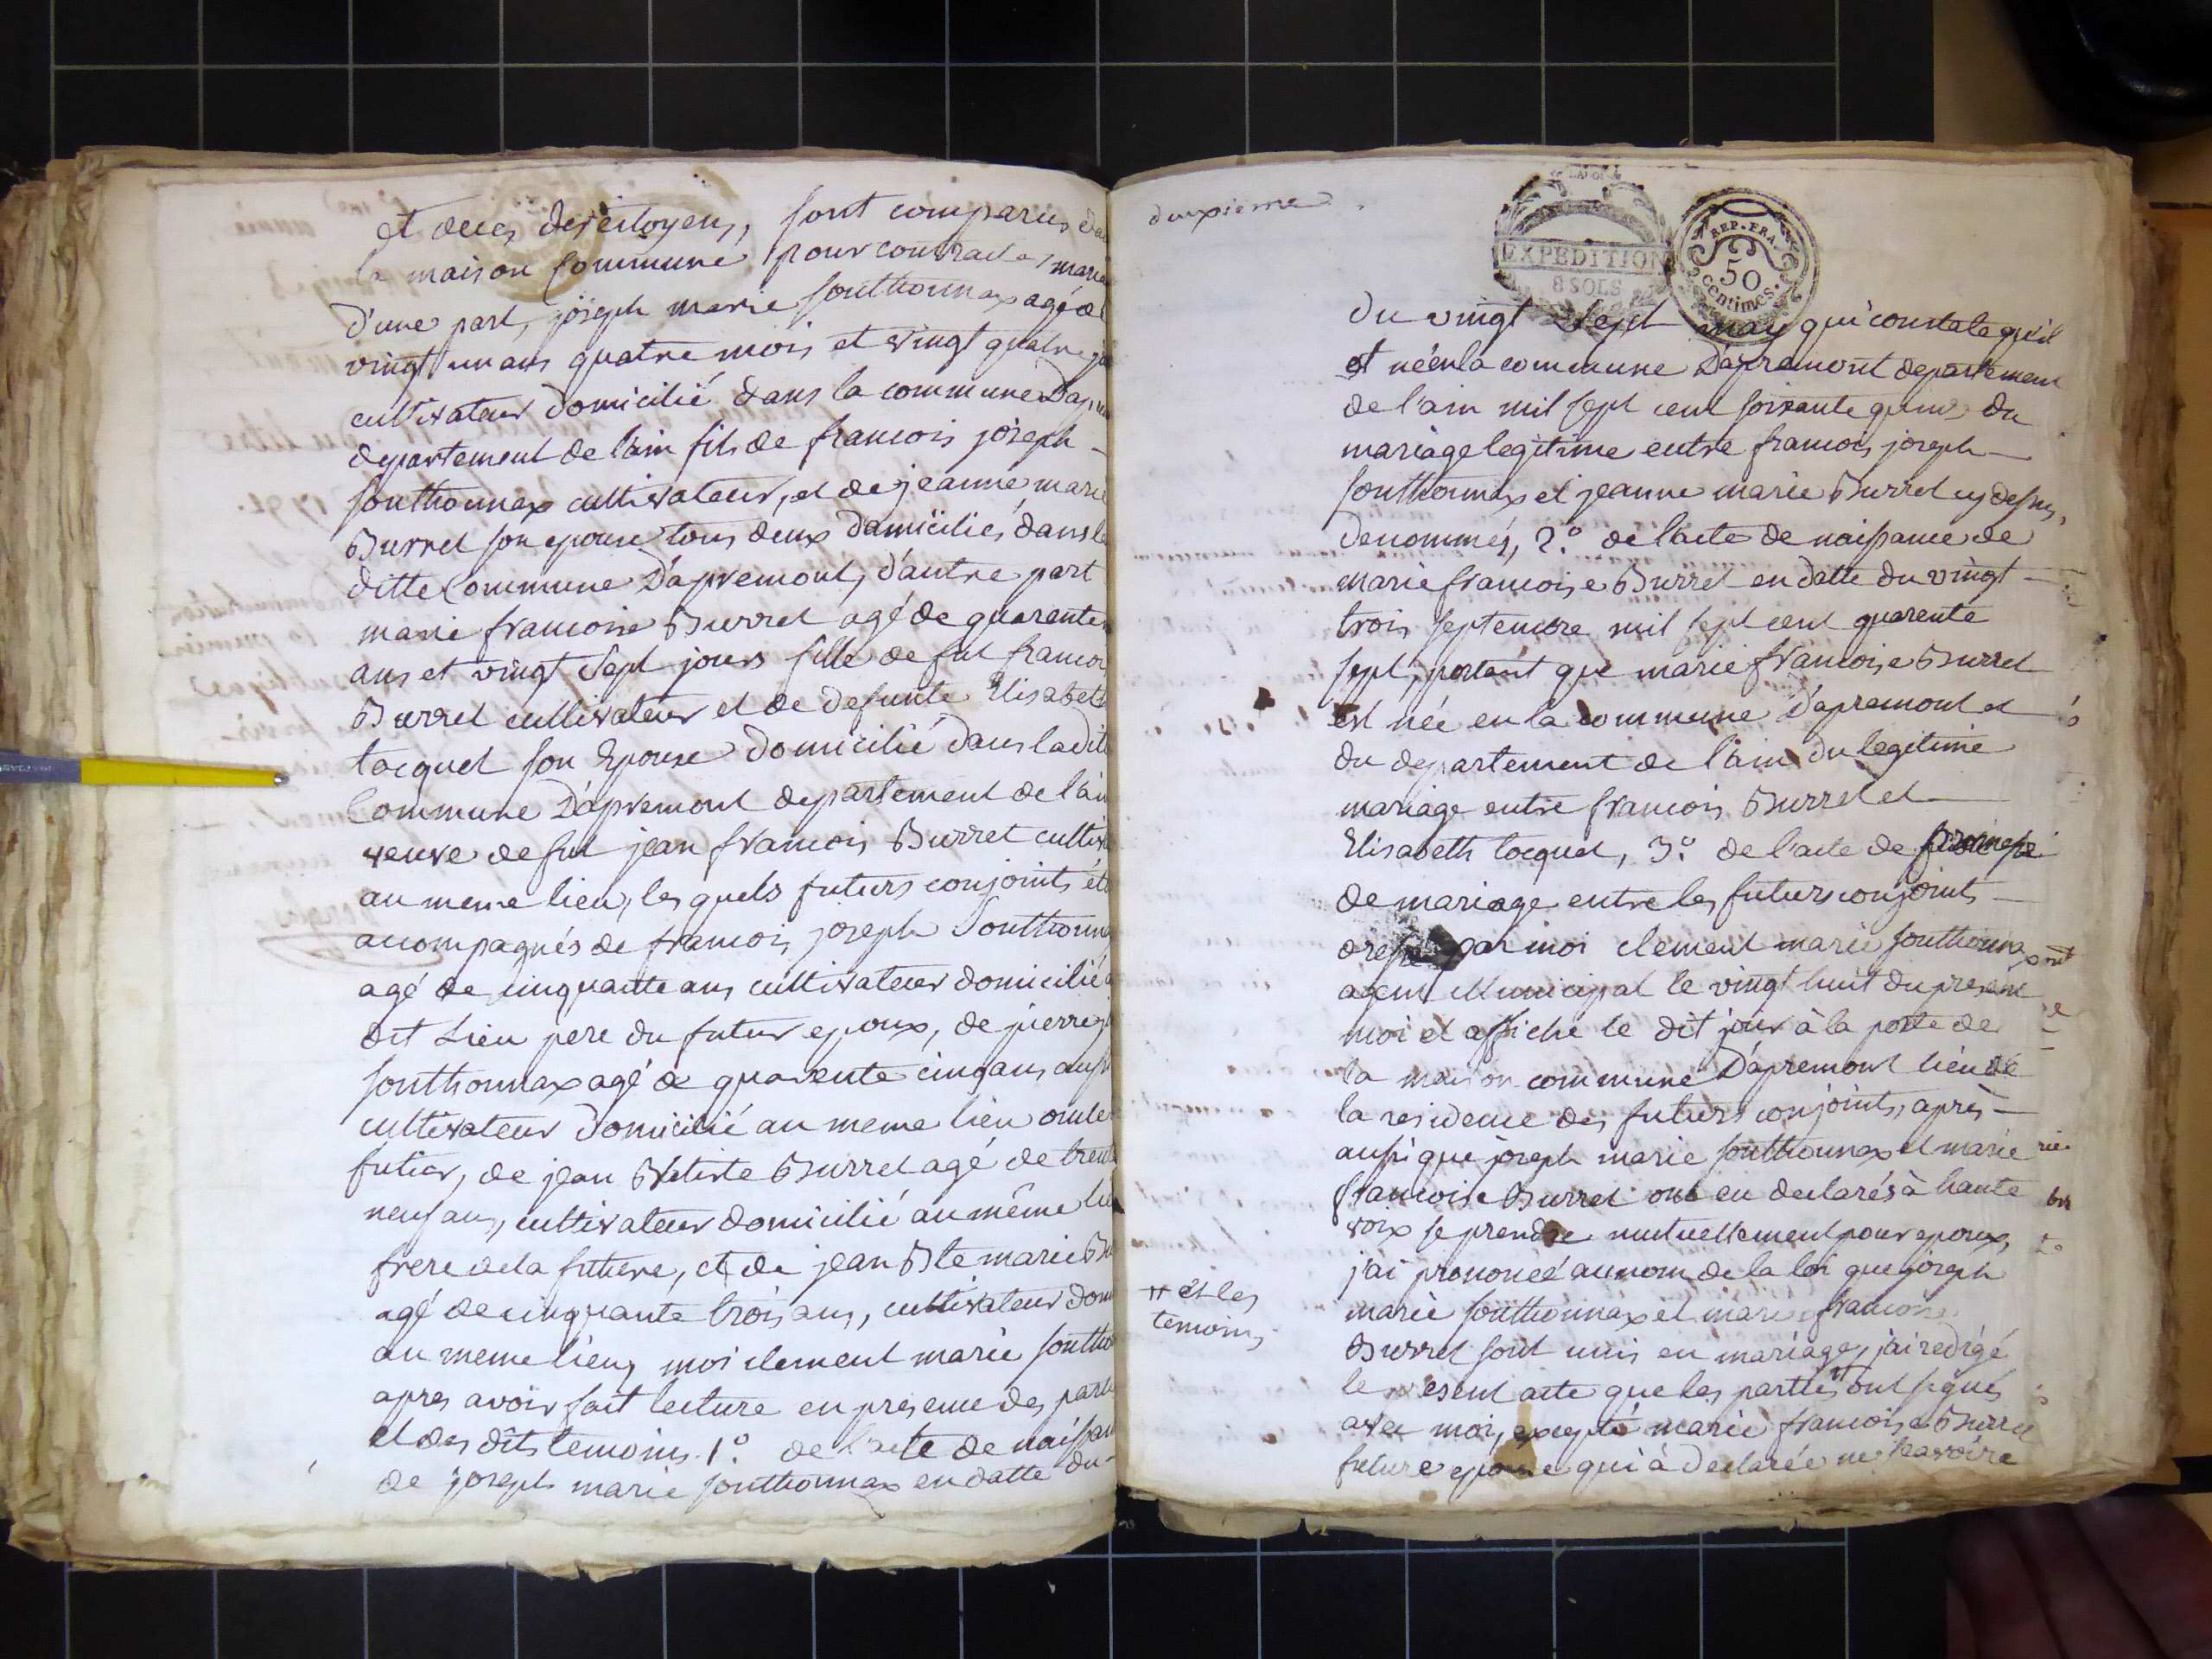 et deces des citoyens, sont comparus da
la maison Commune pour contracter maria
d'une part, joseph marie sonthonnax agé de
vingt un ans quatre mois et vingt quatre jo
cultivateur domicilié dans la commune Dapre
departement de l'ain fils de francois joseph -
sonthonnax cultivateur, et de jeanne marie
Burret son epouse tous deux domiciliés dans la
ditte Commune D'apremont, d'autre part
marie francoise Burret agé de quarente
ans et vingt sept jours fille de fut francoi
Burret cultivateur et de defunte Elisabeth
tocquet son Epouse domicilié dans ladite
Commune D'apremont departement de l'ain
veuve de fut jean francois Burret cultiva
au meme lieu, les quels futurs conjoints éta
accompagnés de francois joseph Sonthonna
agé de cinquante ans cultivateur domicilié a
dit Lieu pere du futur epoux, de pierre j
sonthonnax agé de quarente cinq ans aussi
cultivateur domicilié au meme lieu oncle
futur, de jean Batiste Burret agé de trente
neuf ans, cultivateur domicilié au même lie
frere de la future, et de jean Bte marie Bu
agé de cinquante trois ans, cultivateur dom
au meme lieu, moi clement marie sontho
apres avoir fait lecture en presence des partie
et des dits temoins. 1.° de l'acte de naissan
de joseph marie sonthonnax en datte du-
duxieme
EXPEDITION
8 SOLS
REP. FRA.
50
centimes.
du vingt sept may qui constate qu'il
est né en la commune D'apremont departement
de l'ain mil sept cent soixante quinze du
mariage legitime entre francois joseph -
sonthonnax et jeanne marie Burret cy dessus,
denommés, 2.° de l'acte de naissance de
marie francoise Burret en datte du vingt -
trois septembre mil sept cent quarente
sept, portant que marie francoise Burret
est née en la commune D'apremont et
du departement de l'ain du legitime
mariage entre francois Burret et
Elisabeth tocquet, 3.° de l'acte de
de mariage entre les futurs conjoints -
dressé par moi clement marie sonthonnax
agent Municipal le vingt huit du present
moi et affiché le dit jour à la porte de
la maison commune D'apremont lieu de
la residence des futurs conjoints, après -
aussi que joseph marie sonthonnax et marie
francoise Burret ont eu declarés à haute
voix se prendre mutuellement pour epoux,
j'ai prononcé au nom de la loi que joseph
marie sonthonnax et marie francoise
Burret sont unis en mariage, j'ai redigé
le present acte que les parties ont signés
avec moi, excepté marie francoise Burret
future epouse qui à declarée ne scavoire
et les
temoins